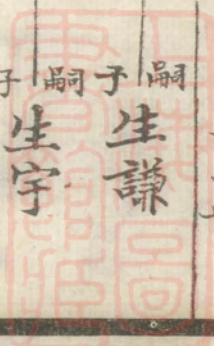 嗣子
生謙
嗣子
生宇